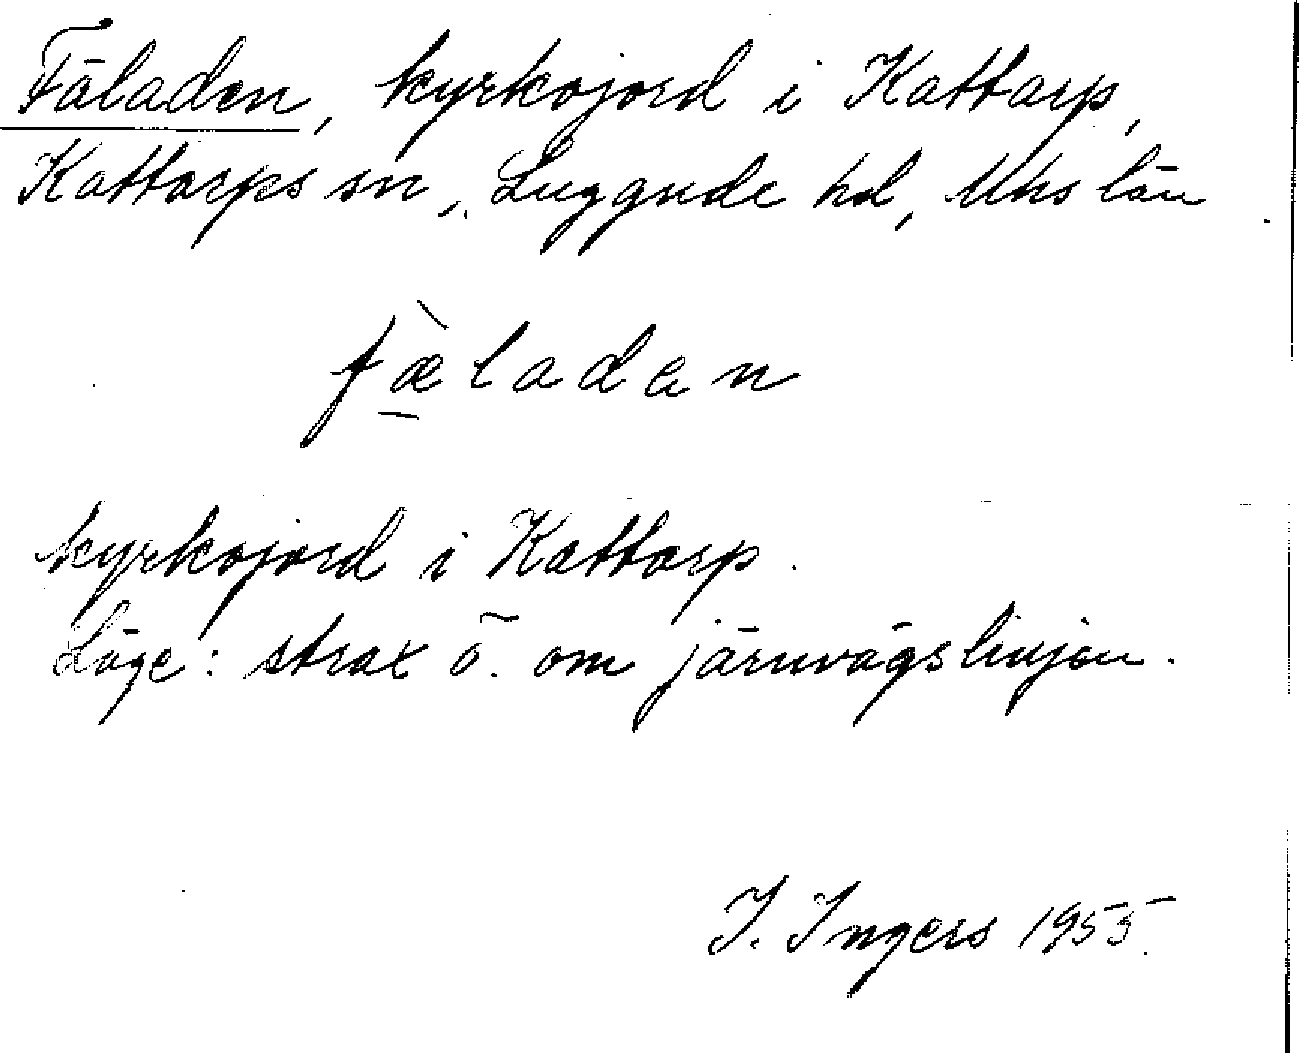 Fäladen, kyrkojord i Kattarp,
Kattarps sn, Luggude hd, Mhs län
fæ̀ladən
kyrkojord i Kattarp.
Läge: strax ö. om järnvägslinjen.
I. Ingers 1955.